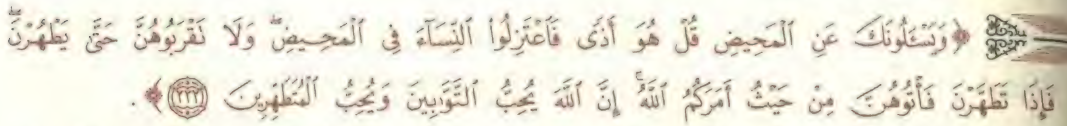 ﴿وَيَسْـَٔلُونَكَ عَنِ ٱلْمَحِيضِ قُلْ هُوَ أَذًى فَٱعْتَزِلُوا۟ ٱلنِّسَآءَ فِى ٱلْمَحِيضِ ۖ وَلَا تَقْرَبُوهُنَّ حَتَّىٰ يَطْهُرْنَ ۖ
فَإِذَا تَطَهَّرْنَ فَأْتُوهُنَّ مِنْ حَيْثُ أَمَرَكُمُ ٱللَّهُ ۚ إِنَّ ٱللَّهَ يُحِبُّ ٱلتَّوَّٰبِينَ وَيُحِبُّ ٱلْمُتَطَهِّرِينَ ٢٢٢﴾.